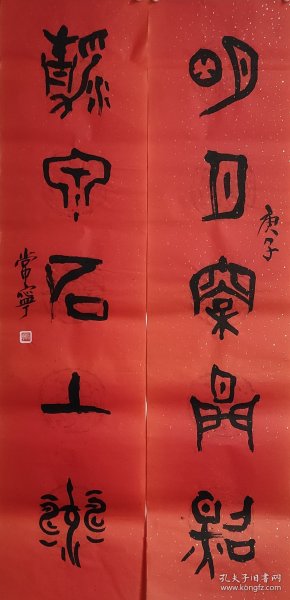 明月松間照
庚子
清泉石上流
常寧
孔夫子旧书网
www.kongfz.com